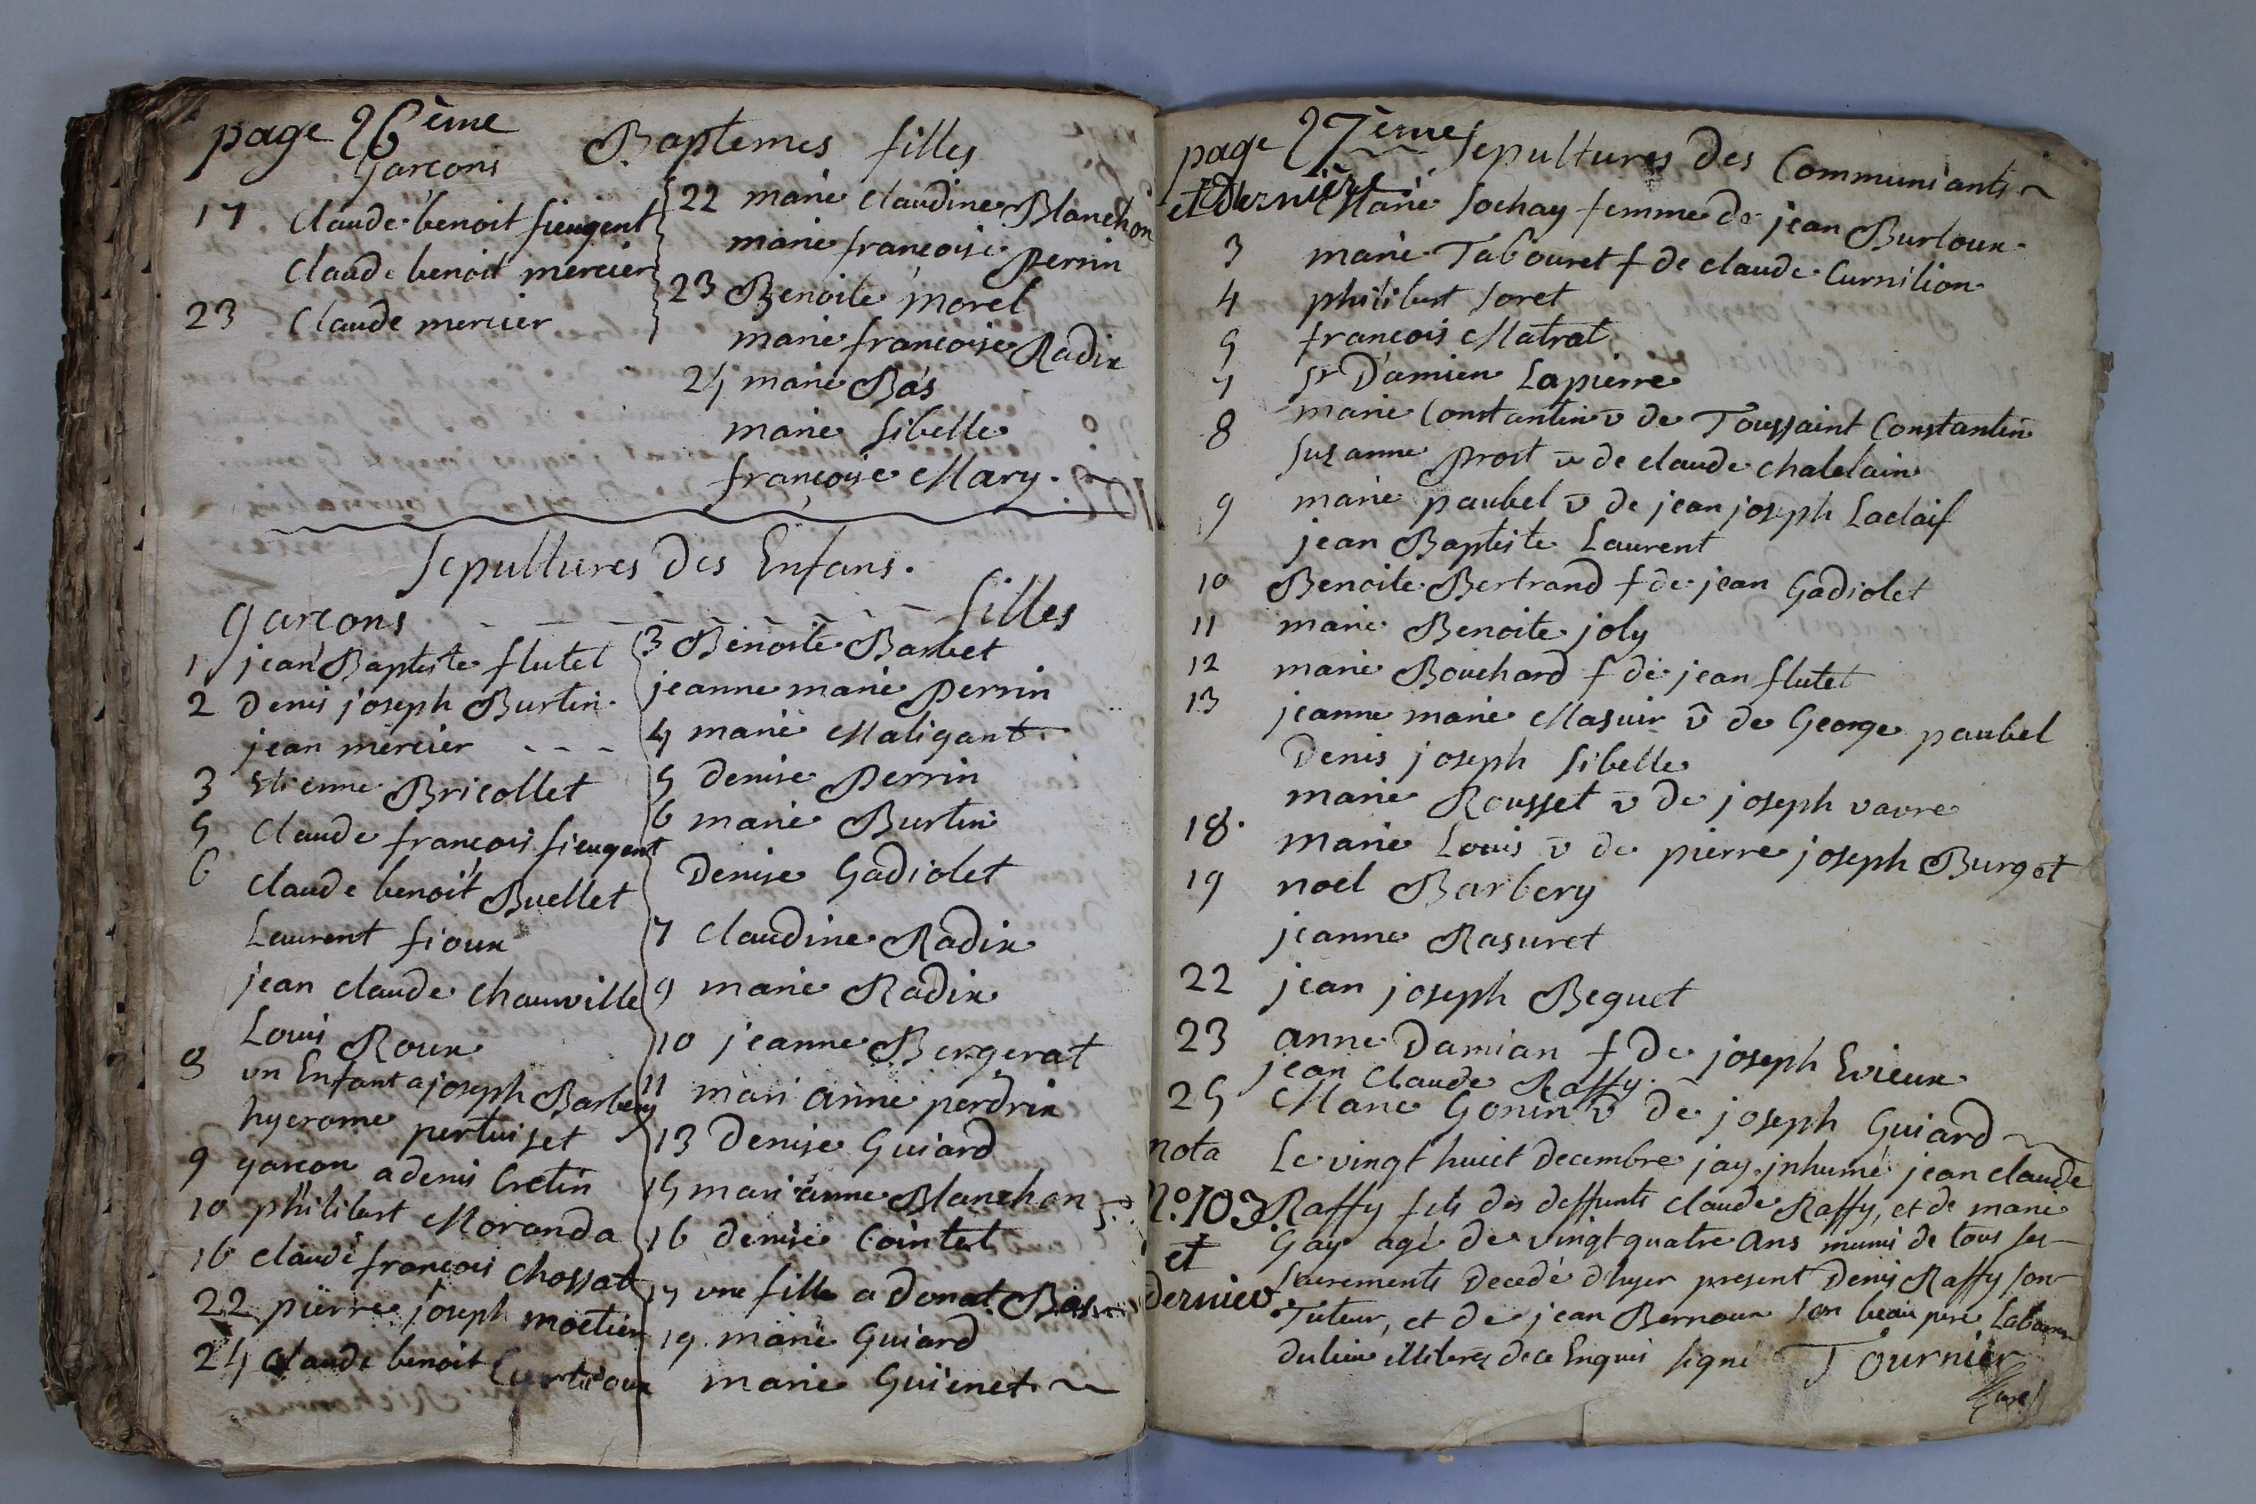 page 26ème
Baptemes filles
Garcons
17 Claude benoit fieugent
Claude benoit mercier
23 Claude mercier
22 marie claudine Blanchon
marie francoise Perrin
23 Benoite morel
marie francoise Radix
24 marie Bas
marie Sibelle
francoise Mary.
Sepultures des Enfans.
garcons - - - - - - - filles
1 jean Baptiste flutet
2 Denis joseph Burtin
jean mercier - - -
3 Etienne Bricollet
5 Claude francois fieugent
6 claude benoit Buellet
Laurent fioux
jean claude chanville
Louis Roux
8 un Enfant a joseph Barbery
hyerome pertuiset
9 garcon a denis Cretin
10 philibert Moranda
16 claude francois chossat
22 pierre joseph moetier
24 claude benoit
3 Benoite Barbet
jeanne marie Perrin
4 marie Maligant
5 denise Perrin
6 marie Burtin
Denise Gadiolet
7 claudine Radix
9 marie Radix
10 jeanne Bergerat
11 mari anne perdrix
13 Denise Guiard
15 mari anne Blanchon
16 denise Cointet
17 une fille a Donat Bas
19 marie Guiard
marie Guienet
page 27ème Sepultures des Communiants
et Derniere Marie Sochay femme de jean Burloux
3 marie Tabouret f de claude Curnilion
4 philibert Soret
5 francois Matrat
7 Sr Damien Lapierre
8 marie Constantin v de Toussaint Constantin
Suzanne Prost v de claude chatelain
9 marie paubel v de jean joseph Laclaif
jean Baptiste Laurent
10 Benoite Bertrand f de jean Gadiolet
11 marie Benoite joly
12 marie Bouchard f de jean flutet
13 jeanne marie Masuir v de George paubel
Denis joseph Sibelle
marie Rousset v de joseph vavre
18. marie Louis v de pierre joseph Burget
19 noel Barbery
jeanne Rasuret
22 jean joseph Beguet
23 anne Damian f de joseph Evieux
jean Claude Raffy.
25 Marie Gonin v de joseph Guiard
nota Le vingt huict decembre jay jnhumé jean claude
No. 103 Raffy fils des deffunts claude Raffy, et de marie
et Gay agé de vingt quatre ans muni de tous ses
dernier. Sacrements decedé d'hyer present Denis Raffy son
Tuteur, et de jean Bernoux son beau pere
du lieu illiterés de ce Enquis signé Tournier
Curé